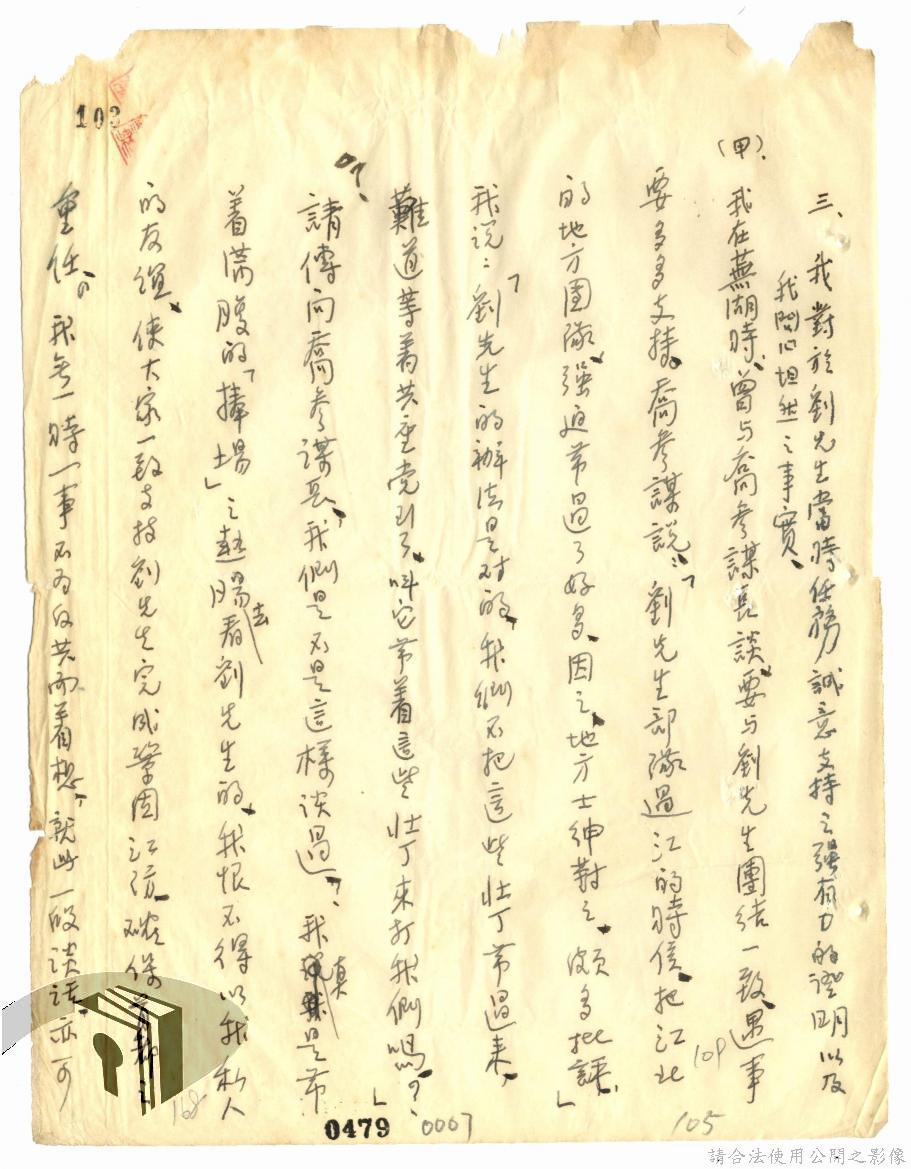 三、我對於劉先生當時任務誠意支持之強有力的證明以及
我問心坦然之事實、
(甲)、
我在蕪湖時、曾與喬參謀長談、要與劉先生團結一致、遇事
要多多支持。喬參謀說:「劉先生部隊過江的時候、把江北
的地方團隊、強迫帶過了好多、因之、地方士紳對之、頗多批評、」
我說:「劉先生的辦法是对的、我們不把這些壯丁帶過來、
難道等着共產党到了、叫它帶着這些壯丁來打我們嗎?、」
請傅向喬參謀長、我們是不是這樣談過?、我真是帶
着滿腹的「捧場」之熱腸去看劉先生的、我恨不得以我私人
的友誼、使大家一致支持劉先生完成鞏固江防、確保首都之
重任。我無一時一事不为反共而着想、就此一段談話、亦可
103
109
105
168
0479
0007
請合法使用公開之影像